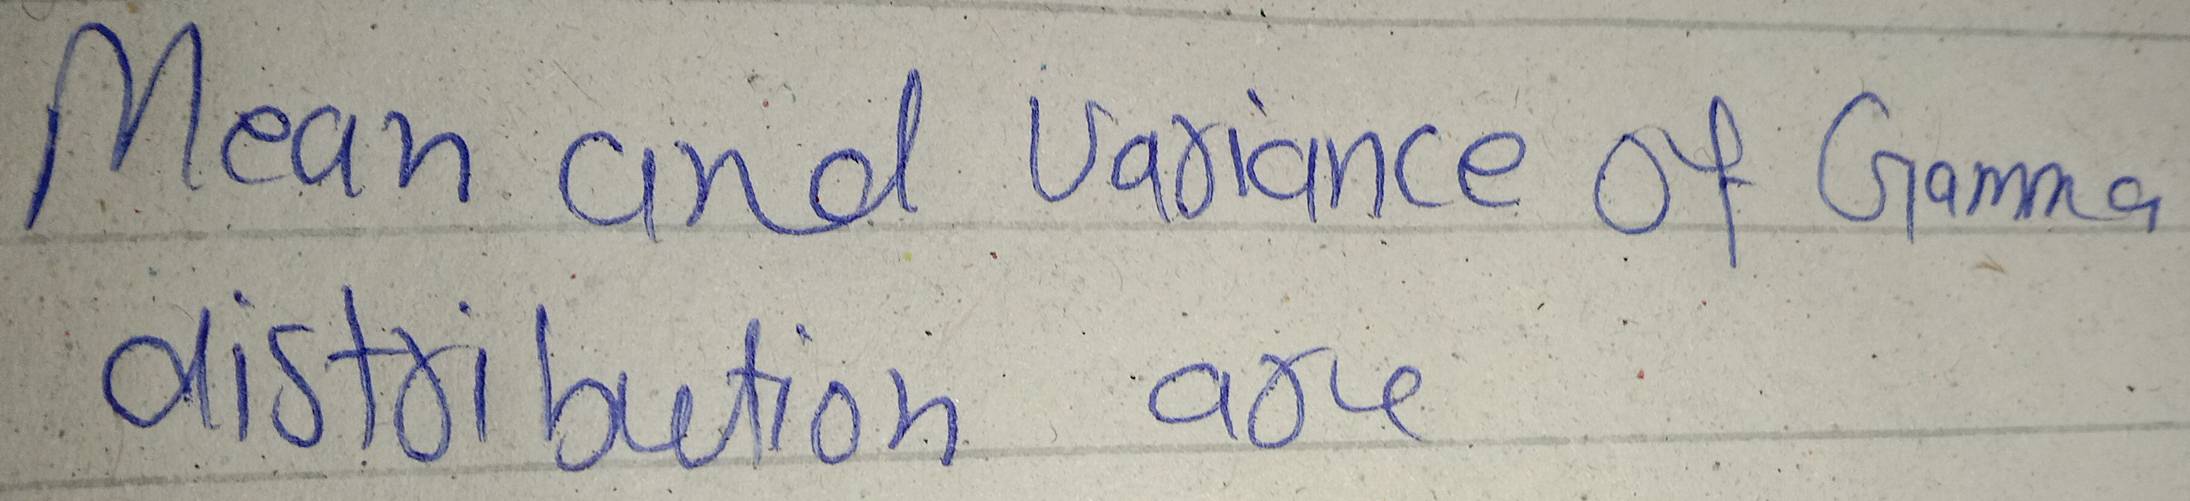 Mean and variance of Gamma
distribution are